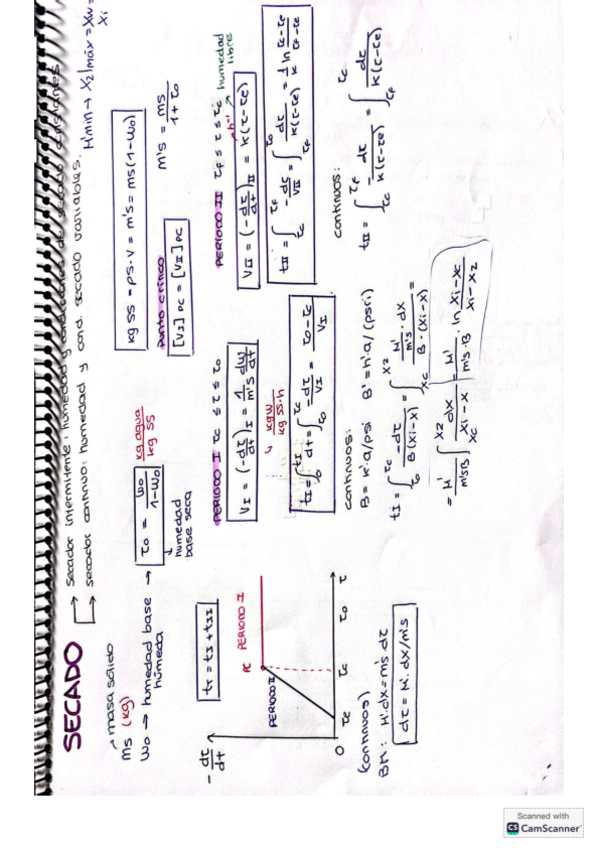 SECADO
→ Secador intermitente: humedad y condiciones de secado constantes.
→ secador continuo: humedad y cond. secado variables.
H'min → X2|máx = Xw = Xi
masa sólido
ms (kg)
wo → humedad base húmeda → τo = wo/(1-wo) kg agua/kg SS
humedad base seca
kg SS = ρs·V = m's = ms(1-wo)
m's = ms/(1+τo)
tT = tI + tII
punto crítico
[VI]PC = [VII]PC
-dτ/dt
PC
PERIODO I
PERIODO II
0 τe τc τo τ
PERIODO I τc ≤ τ ≤ τo
VI = (-dτ/dt)I = 1/m's dw/dt
↳ kg w/kg SS·h
tI = ∫0^tI dt = ∫τo^τc -dτ/VI = (τo-τc)/VI
PERIODO II τf ≤ τ ≤ τc
humedad libre
h⁻¹
VII = (-dτ/dt)II = k(τ-τe)
tII = ∫τc^τf -dτ/VII = ∫τf^τc dτ/k(τ-τe) = 1/k ln (τc-τe)/(τf-τe)
(continuos)
BM: H'·dX = m's dτ
dτ = H'·dX/m's
continuos:
B = k'a/ρsi B' = h'a/(ρsλi)
tI = ∫τo^τc -dτ/B(Xi-X) = ∫Xc^X2 H'/m's·dX/B·(Xi-X) =
= H'/m'sB ∫Xc^X2 dX/(Xi-X) = H'/m's·B · ln (Xi-Xc)/(Xi-X2)
continuos:
tII = ∫τc^τf -dτ/k(τ-τe) = ∫τf^τc dτ/k(τ-τe)
Scanned with
CS CamScanner